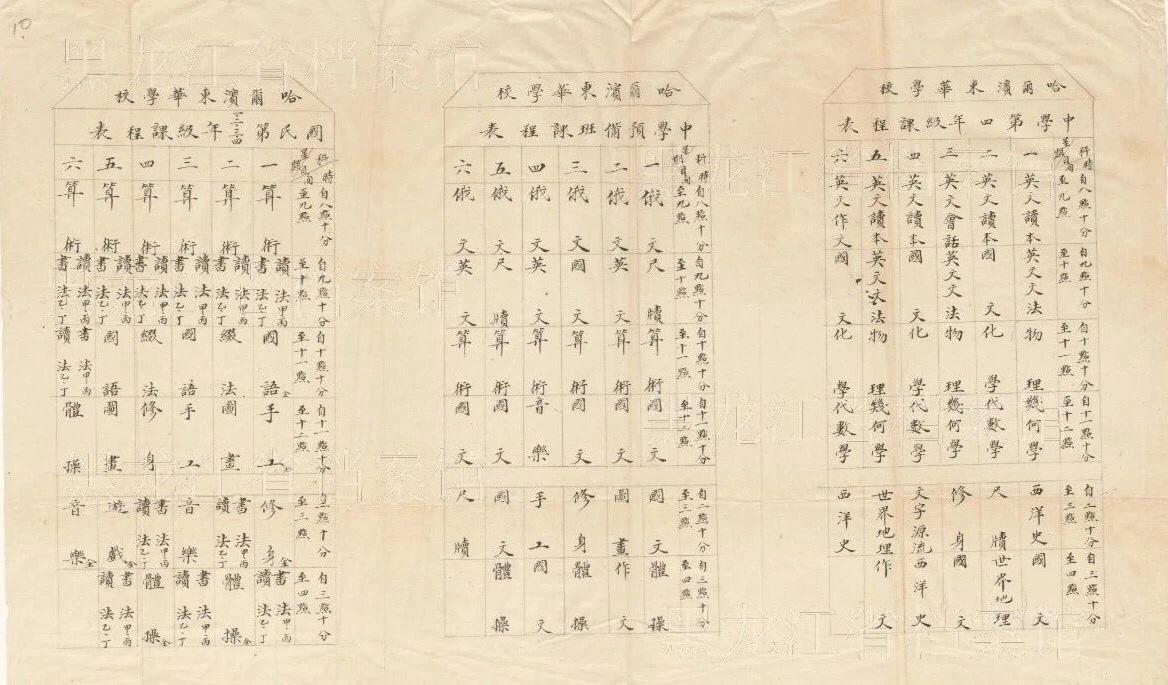 哈爾濱東華學校
中學第四年級課程表
科目 時間 星期 自八點十分至九點 自九點十分至十點 自十點十分至十一點 自十一點十分至十二點 自二點十分至三點 自三點十分至四點
一 英文讀本 英文文法 物理 幾何學 西洋史 國文
二 英文讀本 國文 化學 代數學 尺牘 世界地理
三 英文會話 英文文法 物理 幾何學 修身 國文
四 英文讀本 國文 化學 代數學 文字源流 西洋史
五 英文讀本 英文文法 物理 幾何學 世界地理 作文
六 英文作文 國文 化學 代數學 西洋史
哈爾濱東華學校
中學預備班課程表
科目 時間 星期 自八點十分至九點 自九點十分至十點 自十點十分至十一點 自十一點十分至十二點 自二點十分至三點 自三點十分至四點
一 俄文 尺牘 算術 國文 國文 體操
二 俄文 英文 算術 國文 圖畫 作文
三 俄文 國文 算術 國文 修身 體操
四 俄文 英文 算術 音樂 手工 國文
五 俄文 尺牘 算術 國文 國文 體操
六 俄文 英文 算術 國文 尺牘
哈爾濱東華學校
國民第一二三四年級課程表
科目 時間 星期 自八點十分至九點 自九點十分至十點 自十點十分至十一點 自十一點十分至十二點 自二點十分至三點 自三點十分至四點
一 算術 讀法甲丙 書法乙丁 國語全 手工全 修身全 書法甲丙 讀法乙丁
二 算術 讀法甲丙 書法乙丁 綴法 圖畫 書法甲丙 讀法乙丁 體操全
三 算術 讀法甲丙 書法乙丁 國語 手工 音樂 書法甲丙 讀法乙丁
四 算術 讀法甲丙 書法乙丁 綴法 修身 書法甲丙 讀法乙丁 體操全
五 算術 讀法甲丙 書法乙丁 國語 圖畫 遊戲全 書法甲丙 讀法乙丁
六 算術 讀法甲丙 書法乙丁 書法甲丙 讀法乙丁 體操 音樂全
10
黑龙江省档案馆